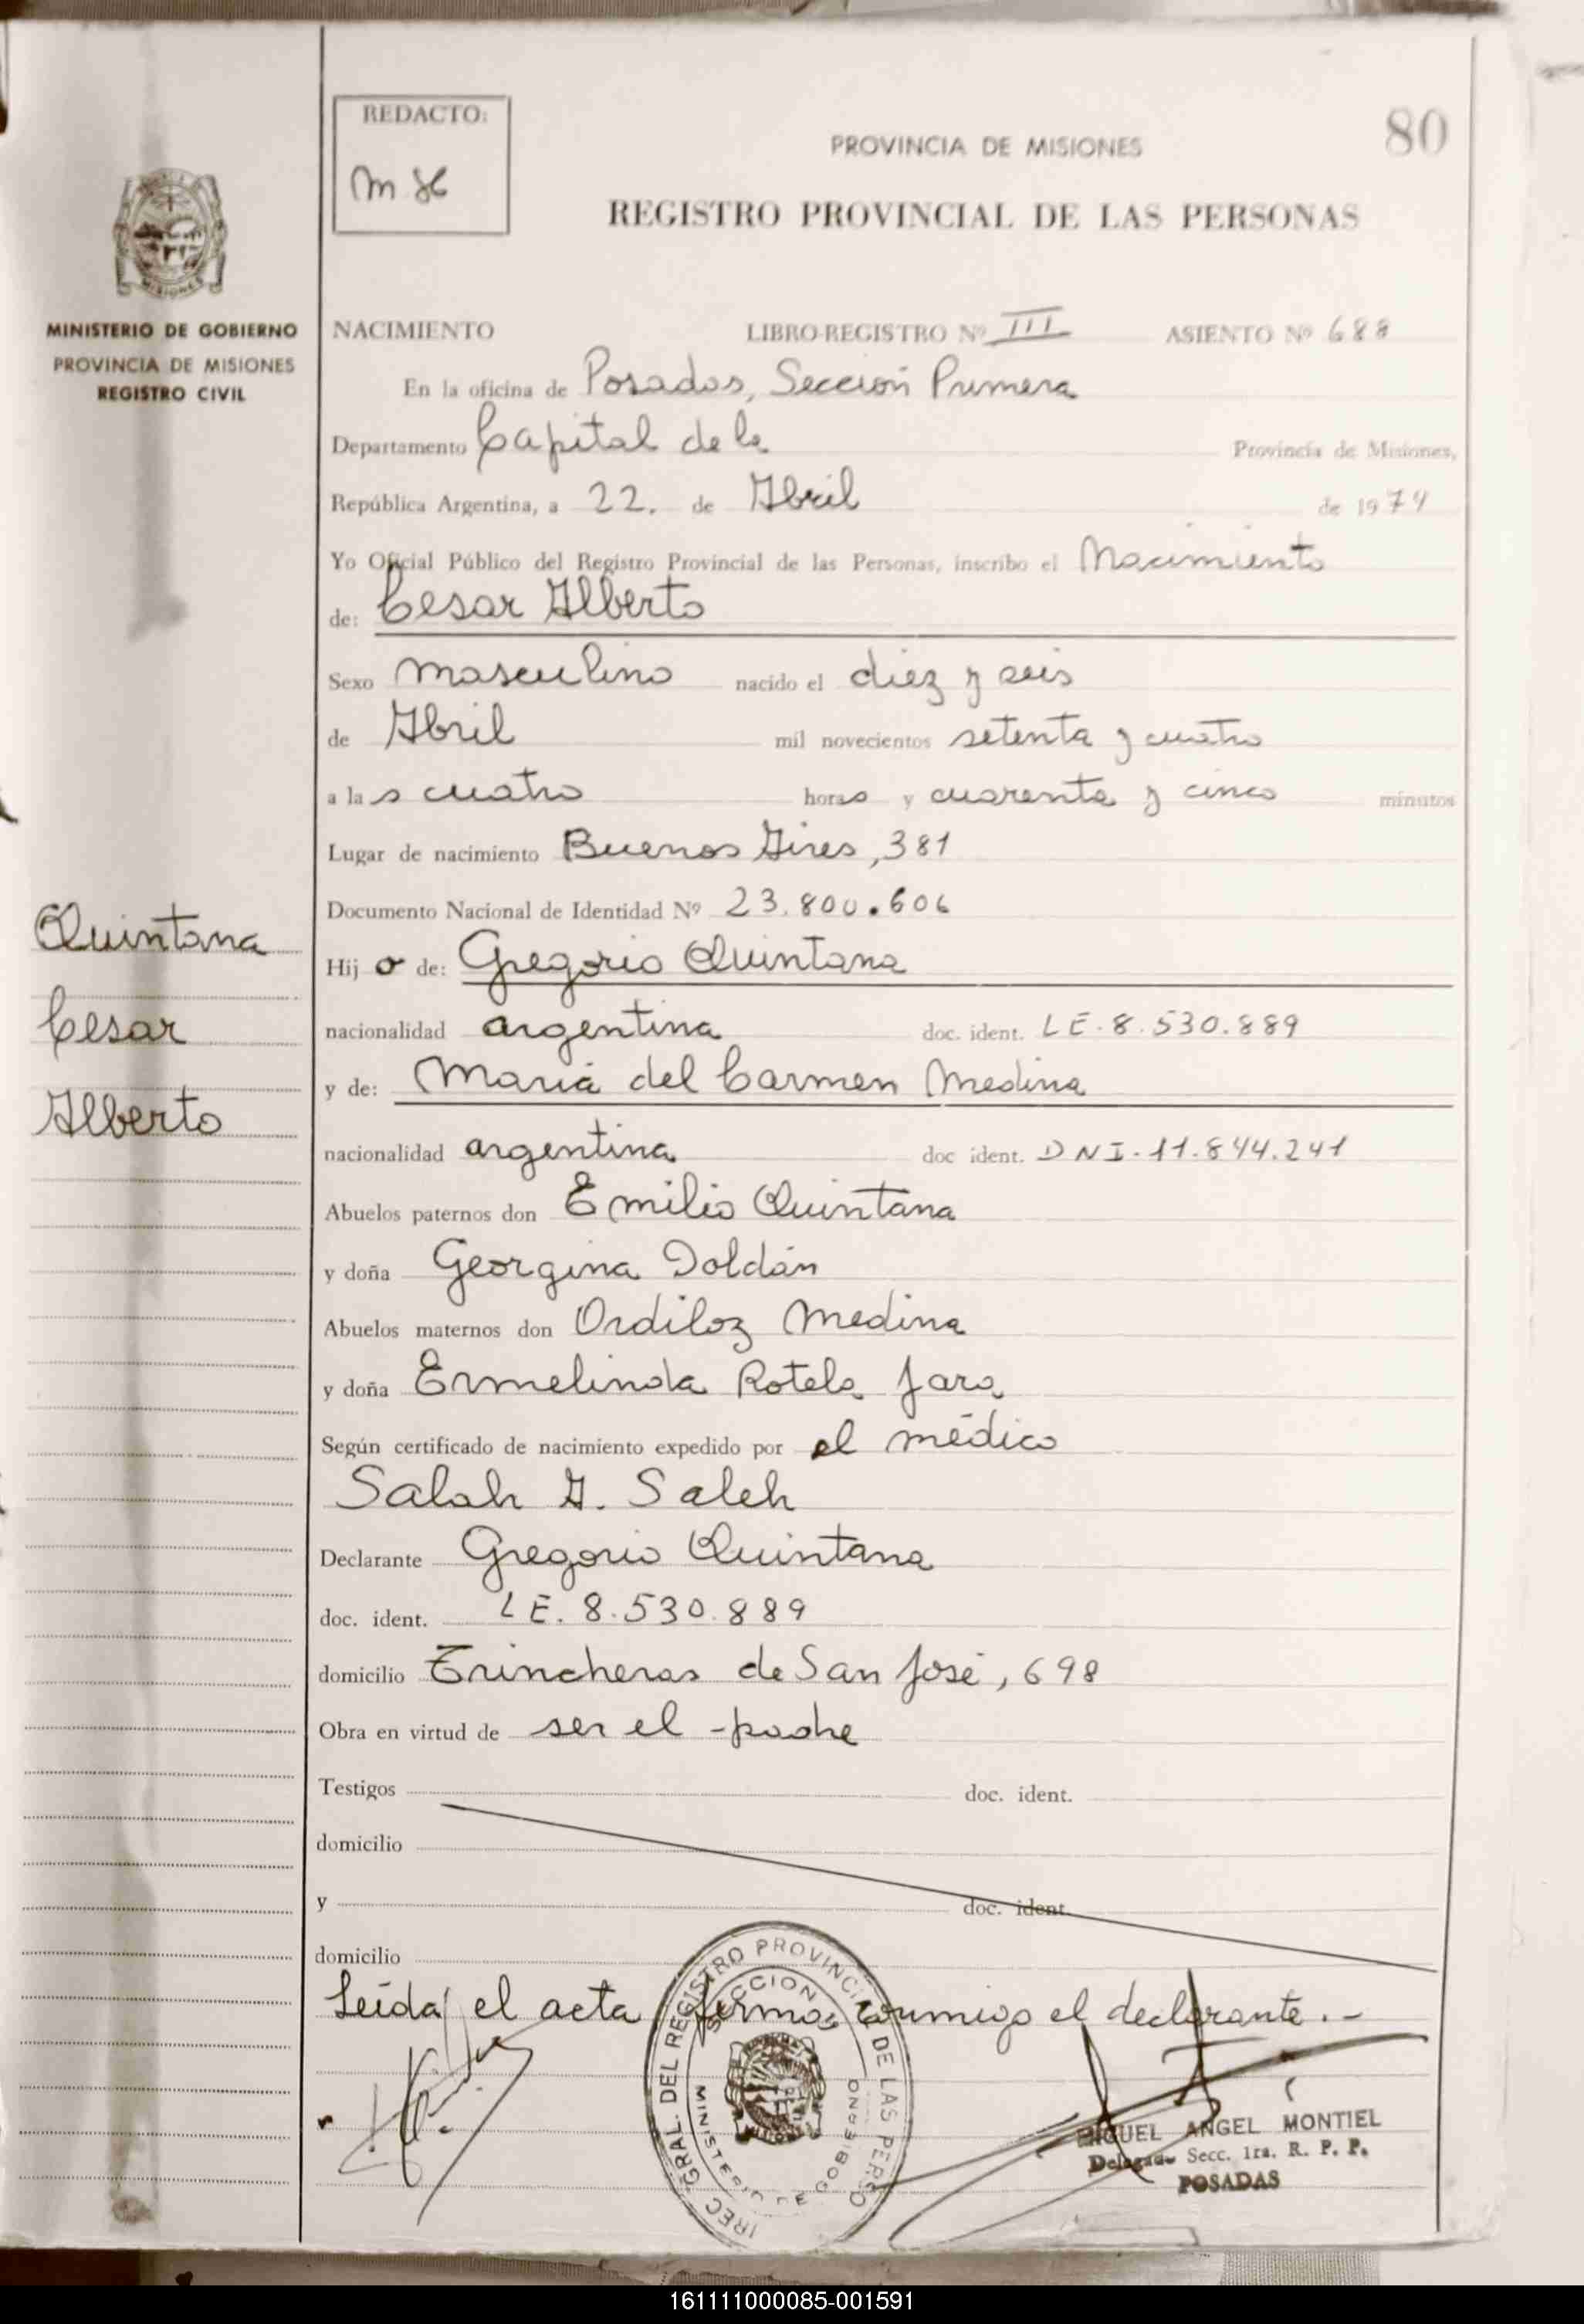 REDACTO:
M
80
PROVINCIA DE MISIONES
REGISTRO PROVINCIAL DE LAS PERSONAS
MISIONES
MINISTERIO DE GOBIERNO
PROVINCIA DE MISIONES
REGISTRO CIVIL
NACIMIENTO LIBRO-REGISTRO Nº III ASIENTO Nº 688
En la oficina de Posadas, Sección Primera
Departamento Capital de la Provincia de Misiones,
República Argentina, a 22. de Abril de 1974
Yo Oficial Público del Registro Provincial de las Personas, inscribo el Nacimiento
de: Cesar Alberto
Sexo masculino nacido el diez y seis
de Abril mil novecientos setenta y cuatro
a las cuatro horas y cuarenta y cinco minutos
Lugar de nacimiento Buenos Aires, 381
Documento Nacional de Identidad Nº 23.800.606
Hijo de: Gregorio Quintana
nacionalidad argentina doc. ident. LE. 8.530.889
y de: María del Carmen Medina
nacionalidad argentina doc ident. DNI. 11.844.241
Abuelos paternos don Emilio Quintana
y doña Georgina Doldán
Abuelos maternos don Ordiloz Medina
y doña Ermelinda Rotela Jara
Según certificado de nacimiento expedido por el médico
Salah A. Saleh
Declarante Gregorio Quintana
doc. ident. LE. 8.530.889
domicilio Trincheras de San José, 698
Obra en virtud de ser el padre
Testigos doc. ident.
domicilio
y doc. ident.
domicilio
Leída el acta firma conmigo el declarante.-
Quintana
Cesar
Alberto
DEL REGISTRO PROVINCIAL DE LAS PERSO
SECCION
MINISTERIO DE GOBIERNO
MIGUEL ANGEL MONTIEL
Delegado Secc. 1ra. R. P. P.
POSADAS
161111000085-001591